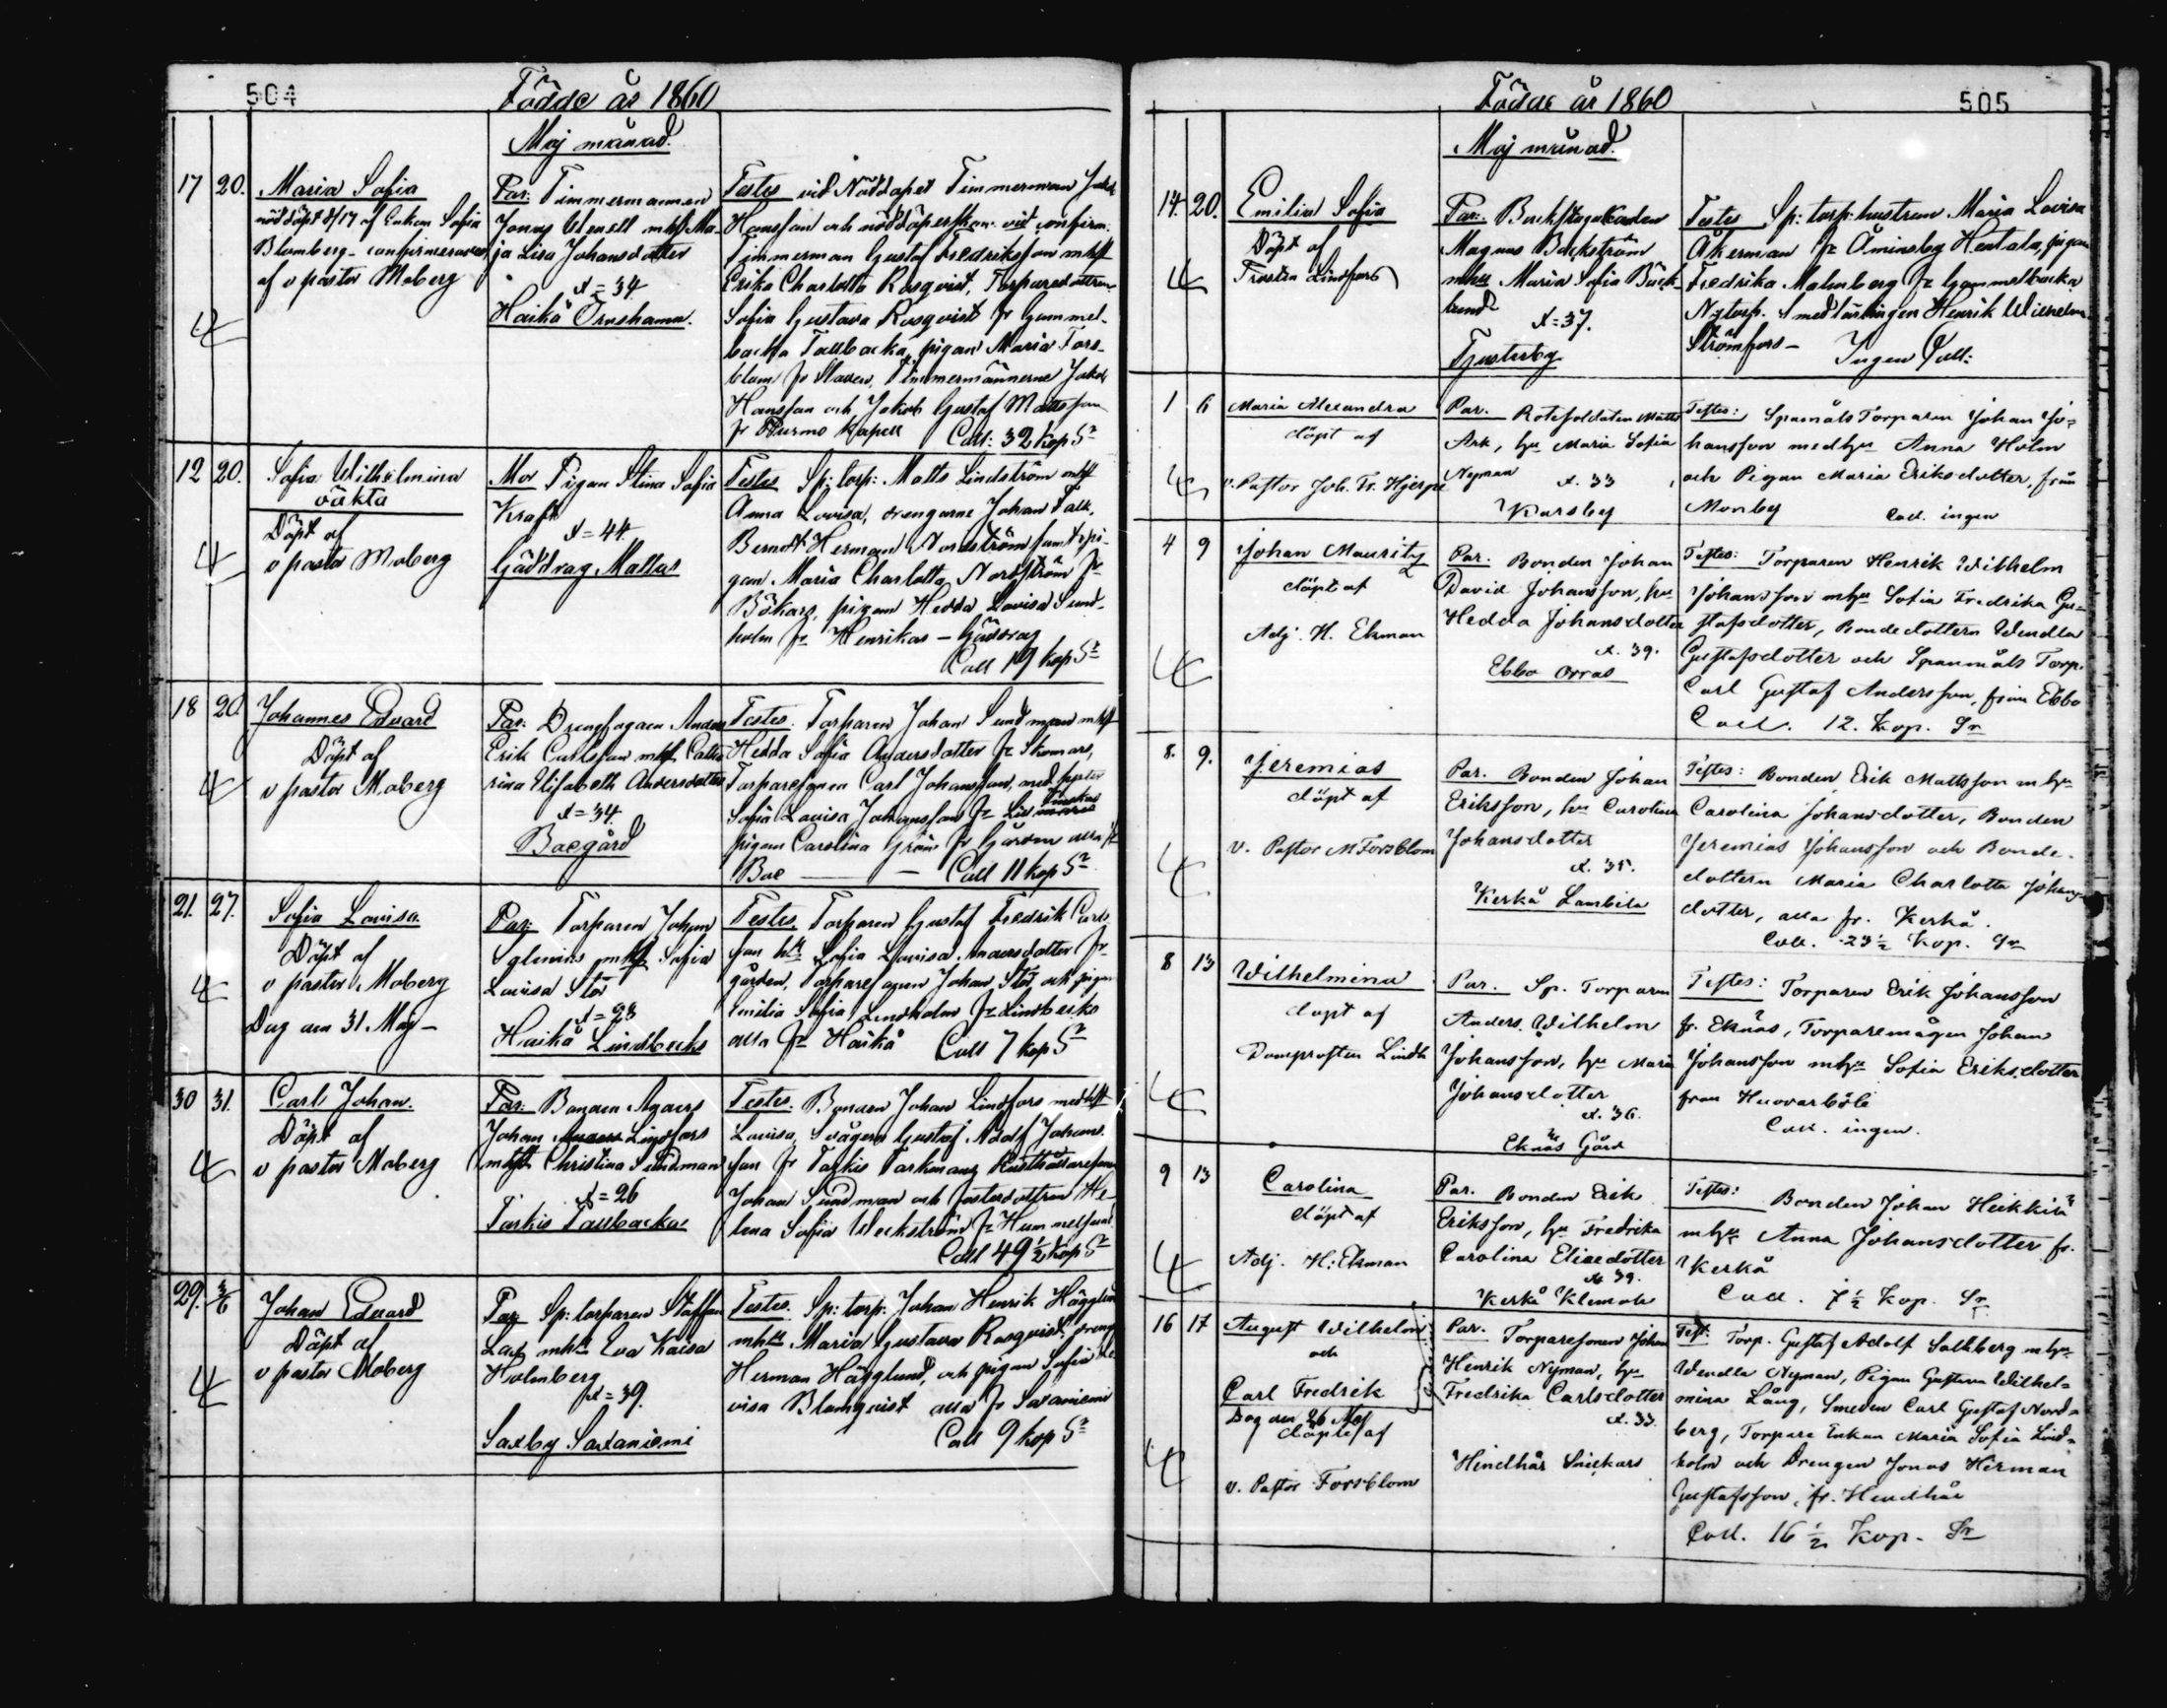 504
Födde år 1860
Maj månad.
17 20.
Maria Sofia
nöddöpt d/17 af Enkan Sofia
Blomberg - confirmerades
af v pastor Moberg
Par: Timmermannen
Jonas mhst Ma-
ja Lisa Johansdotter
x=34
Haikå Örnshamn.
Testes vid Nöddopet Timmerman Jakob
Hansson och nöddöperskan vid confirm.
Timmerman Gustaf Fredriksson mhst
Erika Charlotta Rosqvist, Torparedottren
Sofia Gustava Rosqvist fr Gammel-
backa Tallbacka, pigan Maria Fors-
blom fr Staven, Timmermännerne Jakob
Hansson och Jakob Gustaf Mattsson
fr Purmo Kapell Coll: 32 kop Sr
12 20.
Sofia Wilhelmina
oäkta
Döpt af
v pastor Moberg
Mor Pigan Stina Sofia
Kraft
x=44.
Gäddrag Mattus
Testes Sp: torp: Matts Lindström mhst
Anna Lovisa, drengarne Johan Falk,
Berndt Herman Nordström samt pi-
gan Maria Charlotta Nordström fr
Bökars, pigan Hedda Lovisa Sund-
holm fr Henrikas - Gäddrag
Coll 19 kop Sr
18 20.
Johannes Edvard
Döpt af
v pastor Moberg
Par: Drengfogden Anders
Erik Carlsson mhst Catha
rina Elisabeth Andersdotter
x=34.
Boegård
Testes. Torparen Johan Sundman mhst
Hedda Sofia Andersdotter fr Skomars,
Torparesonen Carl Johansson, med syster
Sofia Lovisa Johansson fr
pigan Carolina Grön fr Gården alla fr
Boe — — Coll 11 kop Sr
21. 27.
Sofia Lovisa.
Döpt af
v pastor Moberg
Dog den 31 Maj -
Par: Torparen Johan
mhst Sofia
Lovisa Stör
x=28
Haikå Lindbecks
Testes. Torparen Gustaf Fredrik Carls-
son hst Sofia Lovisa Andersdotter fr
gården, Torparesonen Johan Stör, och pigan
Emilia Sofia Lindholm fr Lindbecks
alla fr Haikå Coll 7 kop Sr
30 31.
Carl Johan.
Döpt af
v pastor Moberg
Par: Bonden Anders
Johan Lindfors
mhst Christina Sundman
x=26
Tarkis Tallbackas
Testes. Bonden Johan Lindfors med hst
Lovisa, Svågern Gustaf Adolf Johans-
son fr Tarkis Tarkmans Rusthållaresonen
Johan Sundman och fosterdottren He-
lena Sofia Weckström fr Hummelsund.
Coll 49 1/2 kop Sr
29. 3/6
Johan Edvard
Döpt af
v pastor Moberg
Par Sp: torparen Staffan
Lax mhst Eva Kaisa
Holmberg
x=39.
Saxby Saxaniemi
Testes. Sp: torp: Johan Henrik Hägglund
mhst Maria Gustava Rosqvist, dreng
Herman Hägglund, och pigan Sofia Lo-
visa Blomqvist alla fr Saxaniemi
Coll 9 kop Sr
Födde år 1860
505
Maj månad.
14. 20.
Emilia Sofia
Döpt af
Prostin Lindfors
Par:
Magnus Bäckström
mhu Maria Sofia Bäck-
lund
x=37.
Tjusterby
Testes Sp: torp: hustrun Maria Lovisa
Åkerman fr Åminsby Hentala, pigan
Fredrika Malmberg fr Gammelbacka
Nytorp. Smedlärlingen Henrik Wilhelm
Strömfors - Ingen Coll:
1 6
Maria Alexandra
döpt af
v. Pastor Joh. Fr. Hjerpe
Par. Rotesoldaten Matts
Ark, hu Maria Sofia
Nyman x. 33
Karsby
Testes: Spanmåls Torparen Johan Jo-
hansson med hu Anna Holm
och Pigan Maria Eriksdotter, från
Monby Coll. ingen
4 9
Johan Mauritz
döpt af
Adj. H. Ekman
Par. Bonden Johan
David Johansson, hu
Hedda Johansdotter
x. 39.
Ebbo Orras
Testes: Torparen Henrik Wilhelm
Johansson mhu Sofia Fredrika Gu-
stafsdotter, Bondedottern Wendla
Gustafsdotter och Spanmåls Torp.
Carl Gustaf Andersson, från Ebbo
Coll. 12. Kop. Sr
8. 9.
Jeremias
döpt af
v. Pastor M Forsblom
Par. Bonden Johan
Eriksson, hu Carolina
Johansdotter
x. 35.
Kerkå Lambila
Testes: Bonden Erik Mattsson mhu
Carolina Johansdotter, Bonden
Jeremias Johansson och Bonde-
dottern Maria Charlotta Johans-
dotter, alla fr. Kerkå.
Coll. 23 1/2 Kop. Sr
8 13
Wilhelmina
döpt af
Domprosten Lindh
Par. Sp. Torparen
Anders Wilhelm
Johansson, hu Maria
Johansdotter
x. 36.
Eknäs Gård
Testes: Torparen Erik Johansson
fr. Eknäs, Torparemågen Johan
Johansson mhu Sofia Eriksdotter
från Huvarböle
Coll. ingen.
9 13
Carolina
döpt af
Adj. H. Ekman
Par. Bonden Erik
Eriksson, hu Fredrika
Carolina Eliedotter
x 39.
Kerkå Klemola
Testes: Bonden Johan Heikkilä
mhu Anna Johansdotter fr.
Kerkå
Coll. 7 1/2 Kop. Sr
16 17
August Wilhelm
och
Carl Fredrik
Dog den 26 Maj
döpte af
v. Pastor Forsblom
Par. Torparesonen Johan
Henrik Nyman, hu
Fredrika Carlsdotter
x. 33.
Hindhår Snickars
Test: Torp. Gustaf Adolf Sallberg mhu
Wendla Nyman, Pigan Gustava Wilhel-
mina Lång, Smeden Carl Gustaf Nord-
berg, Torpare Enkan Maria Sofia Lind-
holm och Drengen Jonas Herman
Gustafsson, fr. Hindhår
Coll. 16 1/2 Kop. Sr